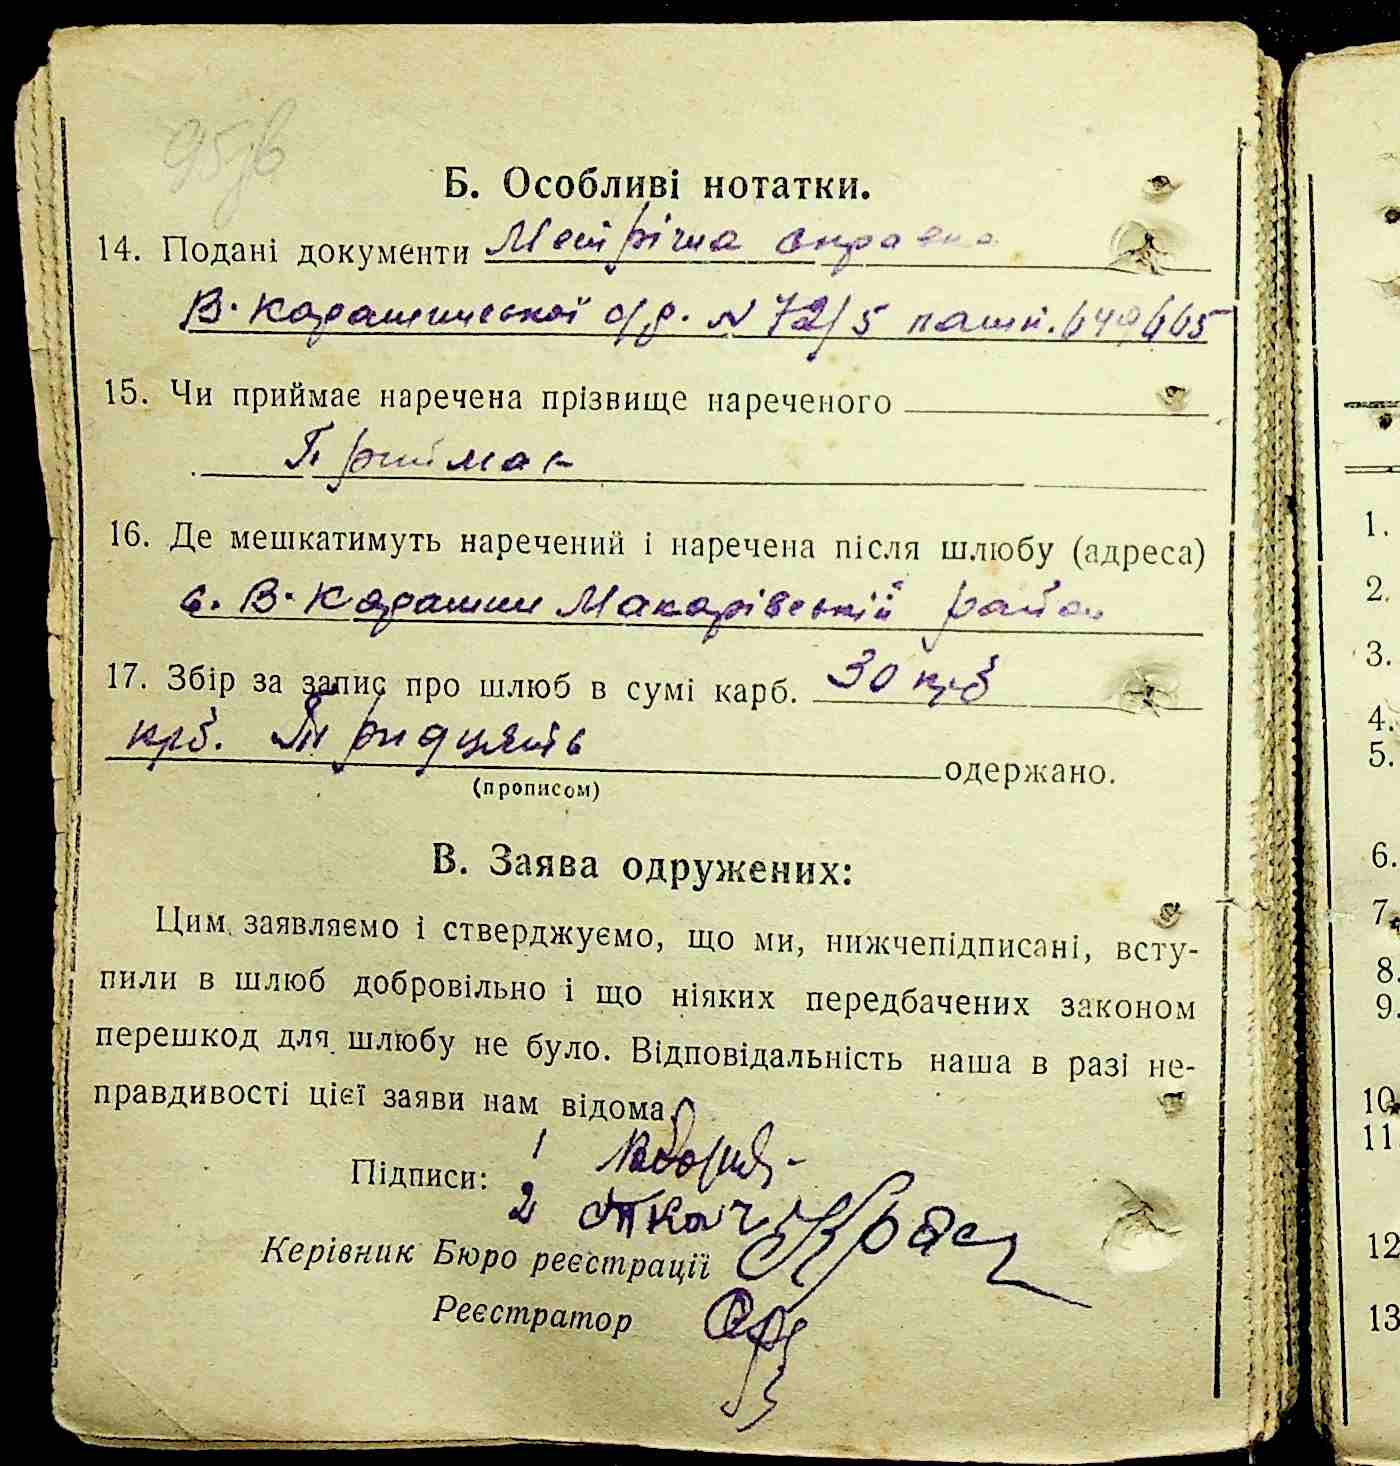 Б. Особливі нотатки.
14. Подані документи Метрічна справка
В. Карашинської с/р. N 72/5 пашп.
15. Чи приймає наречена прізвище нареченого
Приймає
16. Де мешкатимуть наречений і наречена після шлюбу (адреса)
с. В. Карашин Макарівській район
17. Збір за запис про шлюб в сумі карб. 30 крб
крб. Тридцять одержано.
(прописом)
В. Заява одружених:
Цим заявляємо і стверджуємо, що ми, нижчепідписані, всту-
пили в шлюб добровільно і що ніяких передбачених законом
перешкод для шлюбу не було. Відповідальність наша в разі не-
правдивості цієї заяви нам відома.
Підписи: 1
2 Ткач
Керівник Бюро реєстрації
Реєстратор
1.
2.
3.
4.
5.
6.
7.
8.
9.
10.
11
12
13